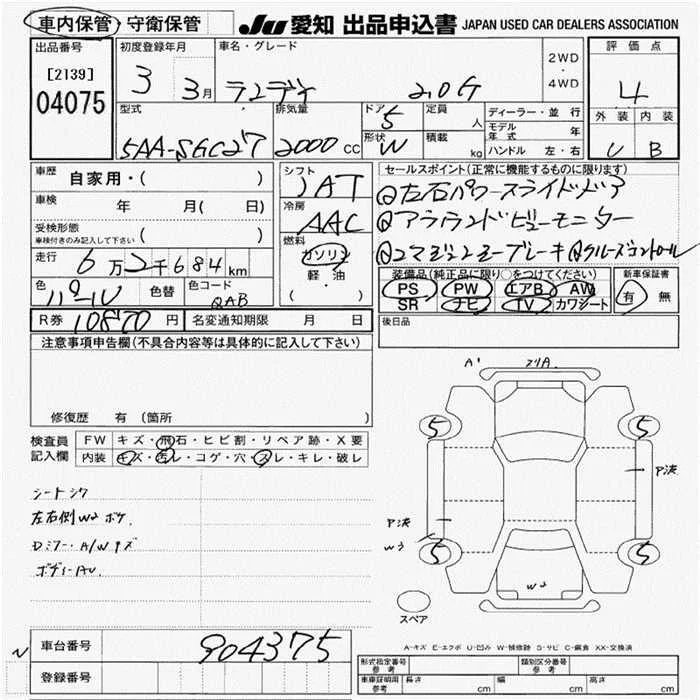 車内保管・守衛保管 JU 愛知 出品申込書 JAPAN USED CAR DEALERS ASSOCIATION
出品番号 初度登録年月 車名・グレード 2WD・4WD 評価点
[2139] 04075 3 3月 ランディ 2.0G 4
型式 排気量 ドア 5 定員 人 ディーラー・並行 外装 内装
5AA-SGC27 2000 CC 形状 W 積載 kg モデル年式 年 U B
ハンドル 左・右
車歴 自家用・( ) シフト IAT セールスポイント(正常に機能するものに限ります)
車検 年 月( 日) 冷房 AAC @左右パワースライドドア
受検形態 車検付きのみ記入して下さい ( ) @アラウンドビューモニター
走行 6万2千684km 燃料 ガソリン 軽・油 ( ) @エマージェンシーブレーキ @クルーズコントロール
色 パール 色替 色コード QAB 装備品(純正品に限り○をつけてください) 新車保証書
PS PW エアB AW 有 無
SR ナビ TV カワシート
R券 10870円 名変通知期限 月 日 後日品
注意事項申告欄(不具合内容等は具体的に記入して下さい)
修復歴 有 (箇所 )
検査員記入欄 FW キズ・飛石・ヒビ割・リペア跡・X要
内装 キズ・汚レ・コゲ・穴・スレ・キレ・破レ
A' スリA
5 5
P決
シートシワ
左右側W2 ボケ P決
Dミラー A/Wキズ W3
ボディーAU 5 5
W2
スペア
A-キズ E-エクボ U-凹み W-補修跡 S-サビ C-腐食 XX-交換済
車台番号 904375
登録番号
型式指定番号 参考 類別区分番号 参考
車車証明用 参考 長さ cm 幅 cm 高さ cm